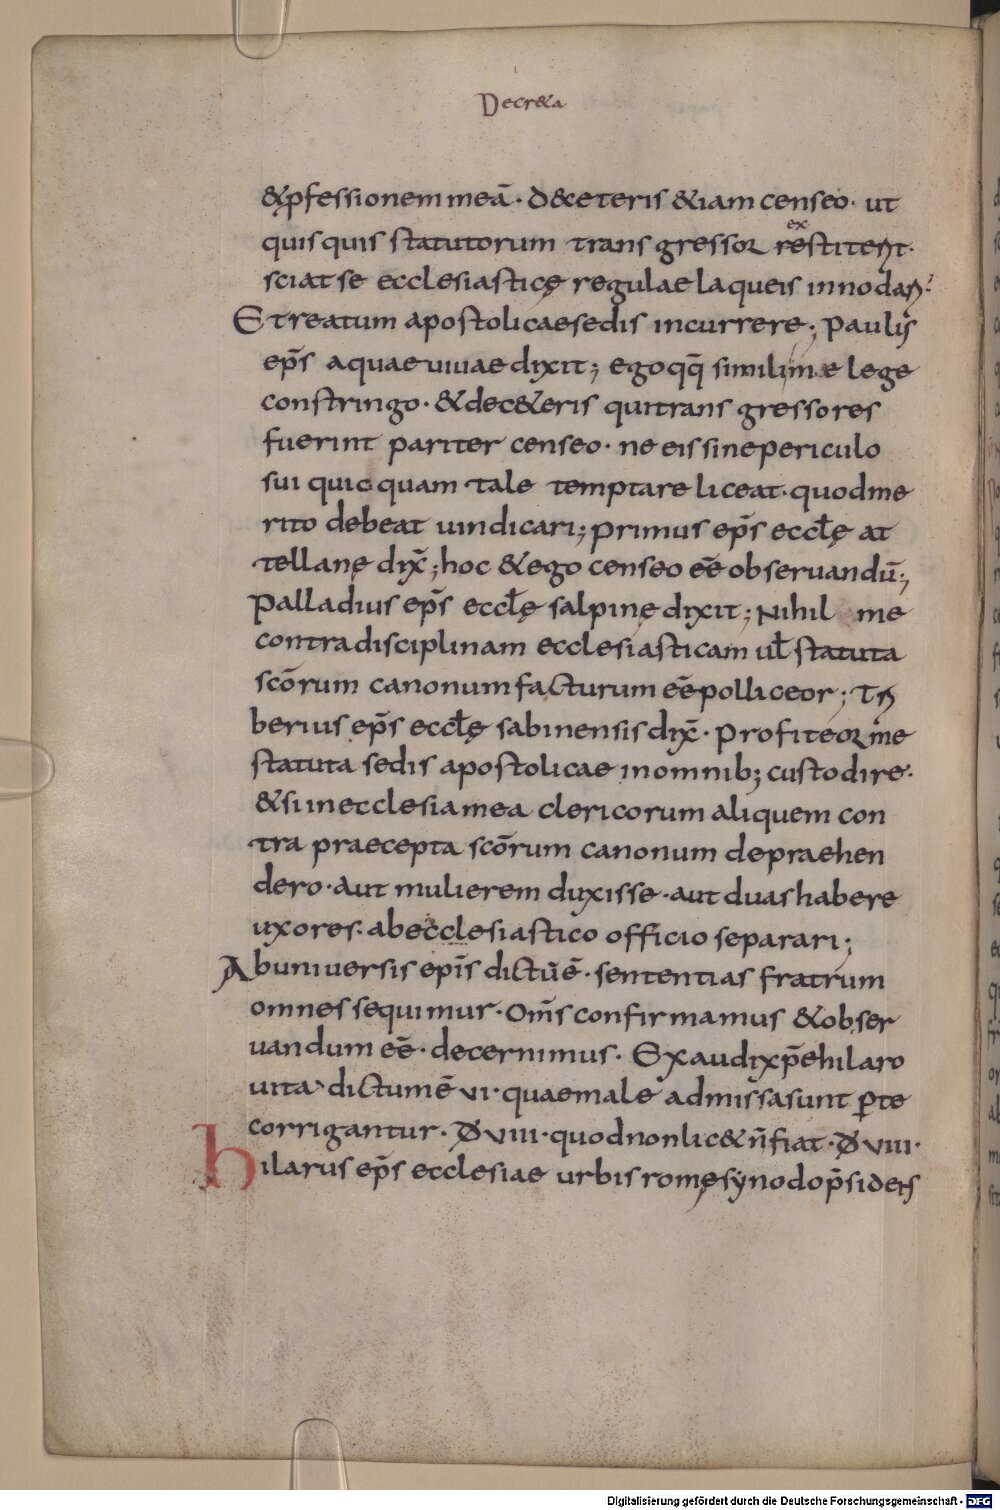 Decr&a
&pfessionem meā · D&ceteris &iam censeo · ut
quis quis statutorum transgressor restiterit ·
ex
sciat se ecclesiasticę regulae laqueis innodari ·
Et reatum apostolicae sedis incurrere ; Paulus
ep̄s aquaeuiuae dixit ; ego qq̄ simili me lege
constringo · &dec&eris qui transgressores
fuerint pariter censeo · ne eis sine periculo
sui quicquam tale temptare liceat · quod me
rito debeat uindicari ; primus ep̄s eccłę at
tellanę dix̄ ; hoc &ego censeo eē obseruandū ;
Palladius ep̄s eccłę salpinę dixit ; Nihil me
contra disciplinam ecclesiasticam uł statuta
scōrum canonum facturum eē polliceor ; Ti
berius ep̄s eccłę sabinensis dix̄ · Profiteor me
statuta sedis apostolicae in omnib; custodire ·
&si in ecclesia mea clericorum aliquem con
tra praecepta scōrum canonum depraehen
dero · aut mulierem duxisse · aut duas habere
uxores · ab ecclesiastico officio separari ;
Ab uniuersis ep̄is dictū ē · sententias fratrum
omnes sequimur · Om̄s confirmamus &obser
uandum eē · decernimus · Exaudi xp̄e hilaro
uita · dictum ē vi · quae male admissa sunt p te
corrigantur · D viii · quod non lic& n̄ fiat · D viii ·
hilarus ep̄s ecclesiae urbis romę synodo p̄sidens
Digitalisierung gefördert durch die Deutsche Forschungsgemeinschaft - DFG